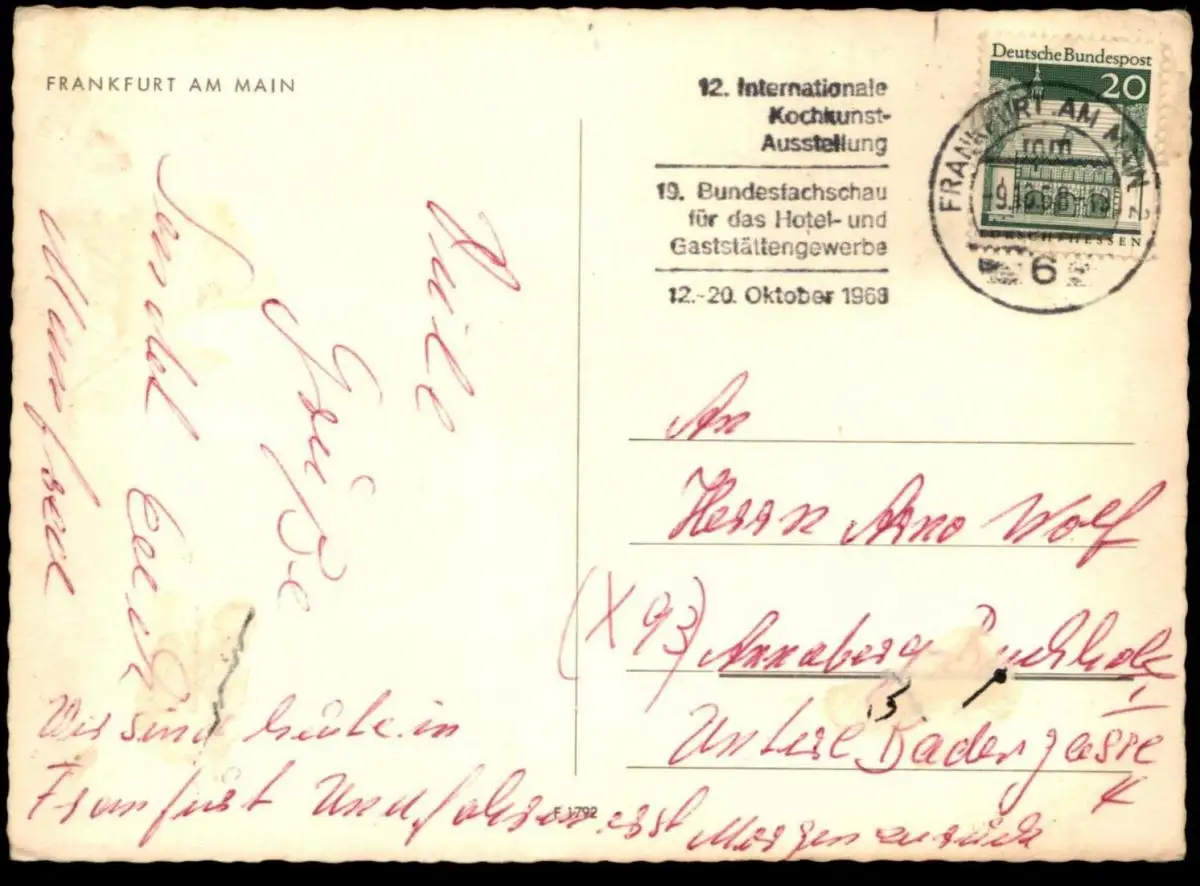 FRANKFURT AM MAIN
12. Internationale
Kochkunst-
Ausstellung
19. Bundesfachschau
für das Hotel- und
Gaststättengewerbe
12.-20. Oktober 1968
Deutsche Bundespost
20
FRANKFURT AM MAIN 2
-9.10.68-19
6
HESSEN
Viele
Grüße
sendet euch
Manfred
Wir sind heute in
Frankfurt und fahren erst Morgen zurück
An
Herrn Arno Wolf
(X 93) Annaberg-Buchholz
Untere Badergasse
F 1792